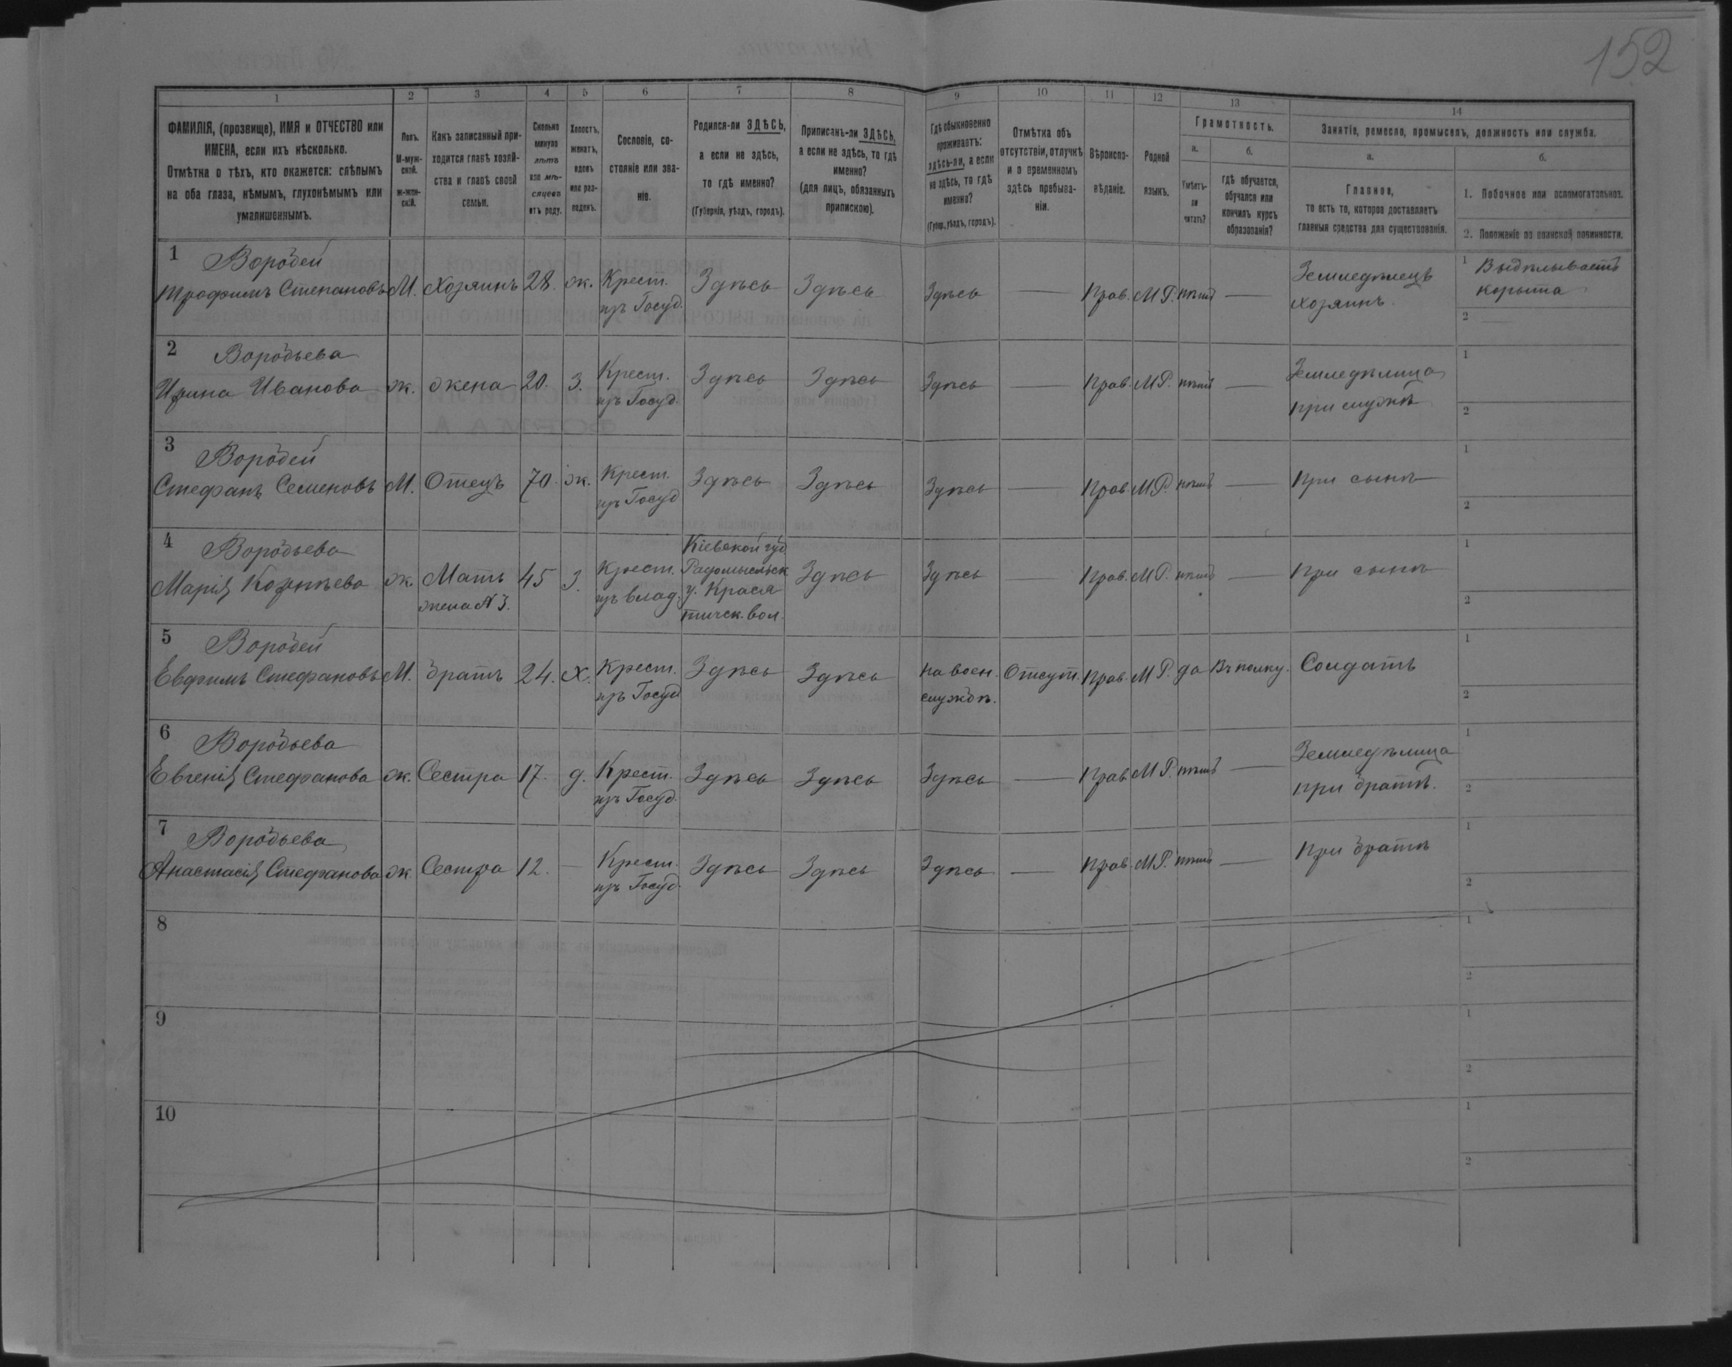 152
1 2 3 4 5 6 7 8 9 10 11 12 13 14
ФАМИЛІЯ, (прозвище), ИМЯ и ОТЧЕСТВО или
ИМЕНА, если ихъ нѣсколько.
Отмѣтка о тѣхъ, кто окажется: слѣпымъ
на оба глаза, нѣмымъ, глухонѣмымъ или
умалишеннымъ.
Полъ.
М-муж-
ской.
ж-жен-
скій.
Какъ записанный при-
ходится главѣ хозяй-
ства и главѣ своей
семьи.
Сколько
минуло
лѣтъ
или мѣ-
сяцевъ
отъ роду.
Холостъ,
женатъ,
вдовъ
или раз-
веденъ.
Сословіе, со-
стояніе или зва-
ніе.
Родился-ли ЗДѢСЬ,
а если не здѣсь,
то гдѣ именно?
(Губернія, уѣздъ, городъ).
Приписанъ-ли ЗДѢСЬ,
а если не здѣсь, то гдѣ
именно?
(для лицъ, обязанныхъ
припискою).
Гдѣ обыкновенно
проживаетъ:
здѣсь-ли, а если
не здѣсь, то гдѣ
именно?
(Губер., уѣздъ, городъ).
Отмѣтка объ
отсутствіи, отлучкѣ
и о временномъ
здѣсь пребыва-
ніи.
Вѣроиспо-
вѣданіе.
Родной
языкъ.
Грамотность.
а.
Умѣетъ-
ли
читать?
б.
гдѣ обучается,
обучался или
кончилъ курсъ
образованія?
Занятіе, ремесло, промыселъ, должность или служба.
а.
Главное,
то есть то, которое доставляетъ
главныя средства для существованія.
б.
1. Побочное или вспомогательное.
2. Положеніе по воинской повинности.
1 Воробей
Трофимъ Степановъ М. хозяинъ 28. ж. Крест. изъ Госуд. Здѣсь Здѣсь Здѣсь — Прав. М.Р. нѣтъ — Земледѣлецъ хозяинъ. 1 Выдѣлываетъ корыта
2 —
2 Воробьева
Ирина Иванова ж. жена 20. з. Крест. изъ Госуд. Здѣсь Здѣсь Здѣсь — Прав. М.Р. нѣтъ — Земледѣлица при мужѣ 1
2
3 Воробей
Стефанъ Семеновъ М. Отецъ 70. ж. Крест. изъ Госуд. Здѣсь Здѣсь Здѣсь — Прав. М.Р. нѣтъ — При сынѣ 1
2
4 Воробьева
Марія Корнѣева ж. Мать жена №3. 45 з. Крест. изъ влад. Кіевской губ Радомысльск у. Крася тичск. вол. Здѣсь Здѣсь — Прав. М.Р. нѣтъ — При сынѣ 1
2
5 Воробей
Евфимъ Стефановъ М. братъ 24. х. Крест. изъ Госуд Здѣсь Здѣсь На воен. службѣ. Отсут. Прав. М.Р. да Въ полку. Солдатъ 1
2
6 Воробьева
Евгенія Стефанова ж. Сестра 17. д. Крест. изъ Госуд. Здѣсь Здѣсь Здѣсь — Прав. М.Р. нѣтъ — Земледѣлица при братѣ. 1
2
7 Воробьева
Анастасія Стефанова ж Сестра 12. — Крест. изъ Госуд. Здѣсь Здѣсь Здѣсь — Прав. М.Р. нѣтъ — При братѣ 1
2
8 1
2
9 1
2
10 1
2